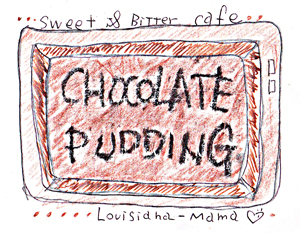 sweet & Bitter cafe
CHOCOLATE
PUDDING
Louisiana-mama